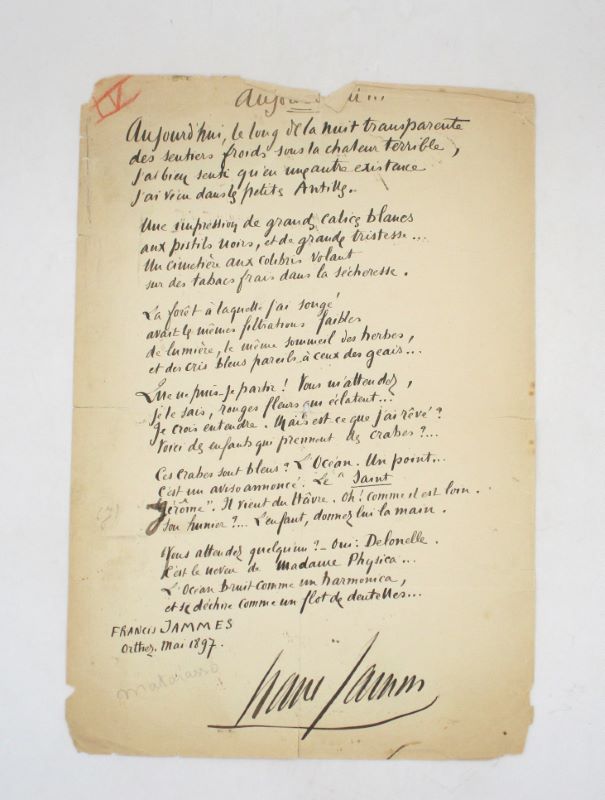 IV
Aujourd'hui...
Aujourd'hui, le long de la nuit transparente
des sentiers froids sous la chaleur terrible,
j'ai bien senti qu'en une autre existence
j'ai vécu dans les petites Antilles.
Une impression de grands calices blancs
aux pistils noirs, et de grande tristesse...
Un cimetière aux colibris volant
sur des tabacs frais dans la sécheresse.
La forêt à laquelle j'ai songé
avait les mêmes filtrations faibles
de lumière, le même sommeil des herbes,
et des cris bleus pareils à ceux des geais...
Que ne puis-je partir! Vous m'attendez,
je le sais, rouges fleurs qui éclatent...
Je crois entendre. Mais est-ce que j'ai rêvé?
Voici des enfants qui prennent des crabes?...
Ces crabes sont bleus? L'Océan. Un point...
C'est un aviso annoncé. Le "Saint
Jérôme". Il vient du Hâvre. Oh! comme il est loin.
Son hunier?... L'enfant, donnez lui la main.
Vous attendez quelqu'un?- Oui: Delonelle.
C'est le neveu de Madame Physica...
L'Océan bruit comme un harmonica,
et se déchire comme un flot de dentelles...
FRANCIS JAMMES
Orthez, Mai 1897.
Francis Jammes